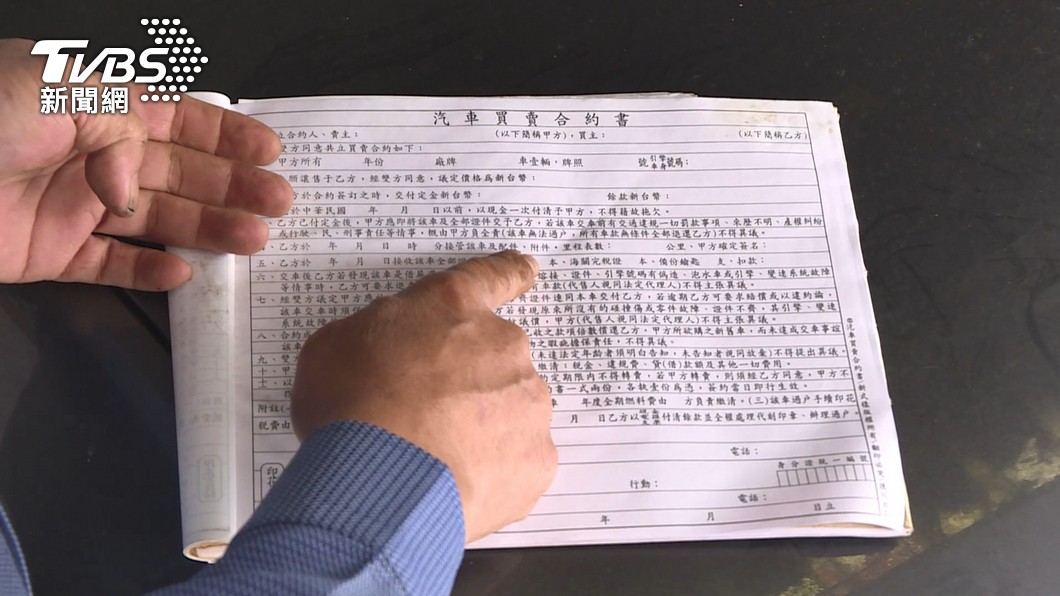 TVBS
新聞網
汽車買賣合約書
立合約人、賣主： (以下簡稱甲方)，買主： (以下簡稱乙方)
雙方同意共立買賣合約如下：
甲方所有 年份 廠牌 車壹輛，牌照 號引擎車身號碼：
願讓售予乙方，經雙方同意，議定價格為新台幣：
方於合約簽訂之時，交付定金新台幣： 餘款新台幣：
於中華民國 年 月 日以前，以現金一次付清予甲方，不得藉故拖欠。
乙方已付定金後，甲方應即將該車及全部證件交予乙方，若該車交車前有交通違規一切罰款事項、來歷不明、產權糾紛
或行駛、民、刑事責任等情事，概由甲方負全責(該車無法過戶，所有車款無條件全部退還乙方)不得異議。
乙方於 年 月 日 時 分接管該車及配件，附件，里程表數： 公里、甲方確定簽名：
五、乙方於 年 月 日接收該車全部證 本、海關完稅證 本、備份鑰匙 支、扣款：
六、交車後乙方若發現該車是借屍 熔接、證件、引擎號碼有偽造、泡水車或引擎、變速系統故障
等情事時，乙方可要求退 車款(代售人視同法定代理人)不得主張異議。
七、經雙方議定甲方應於 資證件連同本車交付乙方，若逾期乙方可要求賠償或以違約論，
該車交車時須 方若發現原來所沒有的碰撞傷或零件故障、證件不齊，其引擎、變速
系統故障 議價，甲方(代售人視同法定代理人)不得主張異議。
八、合約成 已收之款項倍數償還乙方，甲方所欲購之新舊車，而未達成交車事誼
該車 物之瑕疵擔保責任，不得異議。
九、雙方 (未達法定年齡者須明白告知，未告知者視同放棄)不得提出異議。
十、甲 繳清：稅金、違規費、貸(借)款額及其他一切費用。
十一、以 約定期限內不得轉賣，若甲方轉賣，則須經乙方同意，甲方不
書一式兩份，各執壹份為憑，簽約當日即行生效。
附註(一 車 年度全期燃料費由 方負責繳清。(三)該車過戶手續印花
稅費由 月 日乙方以現金電匯支票付清餘款並全權處理代刻印章、辦理過戶。
電話：
身分證統一編號
印花
行動：
電話：
年 月 日立